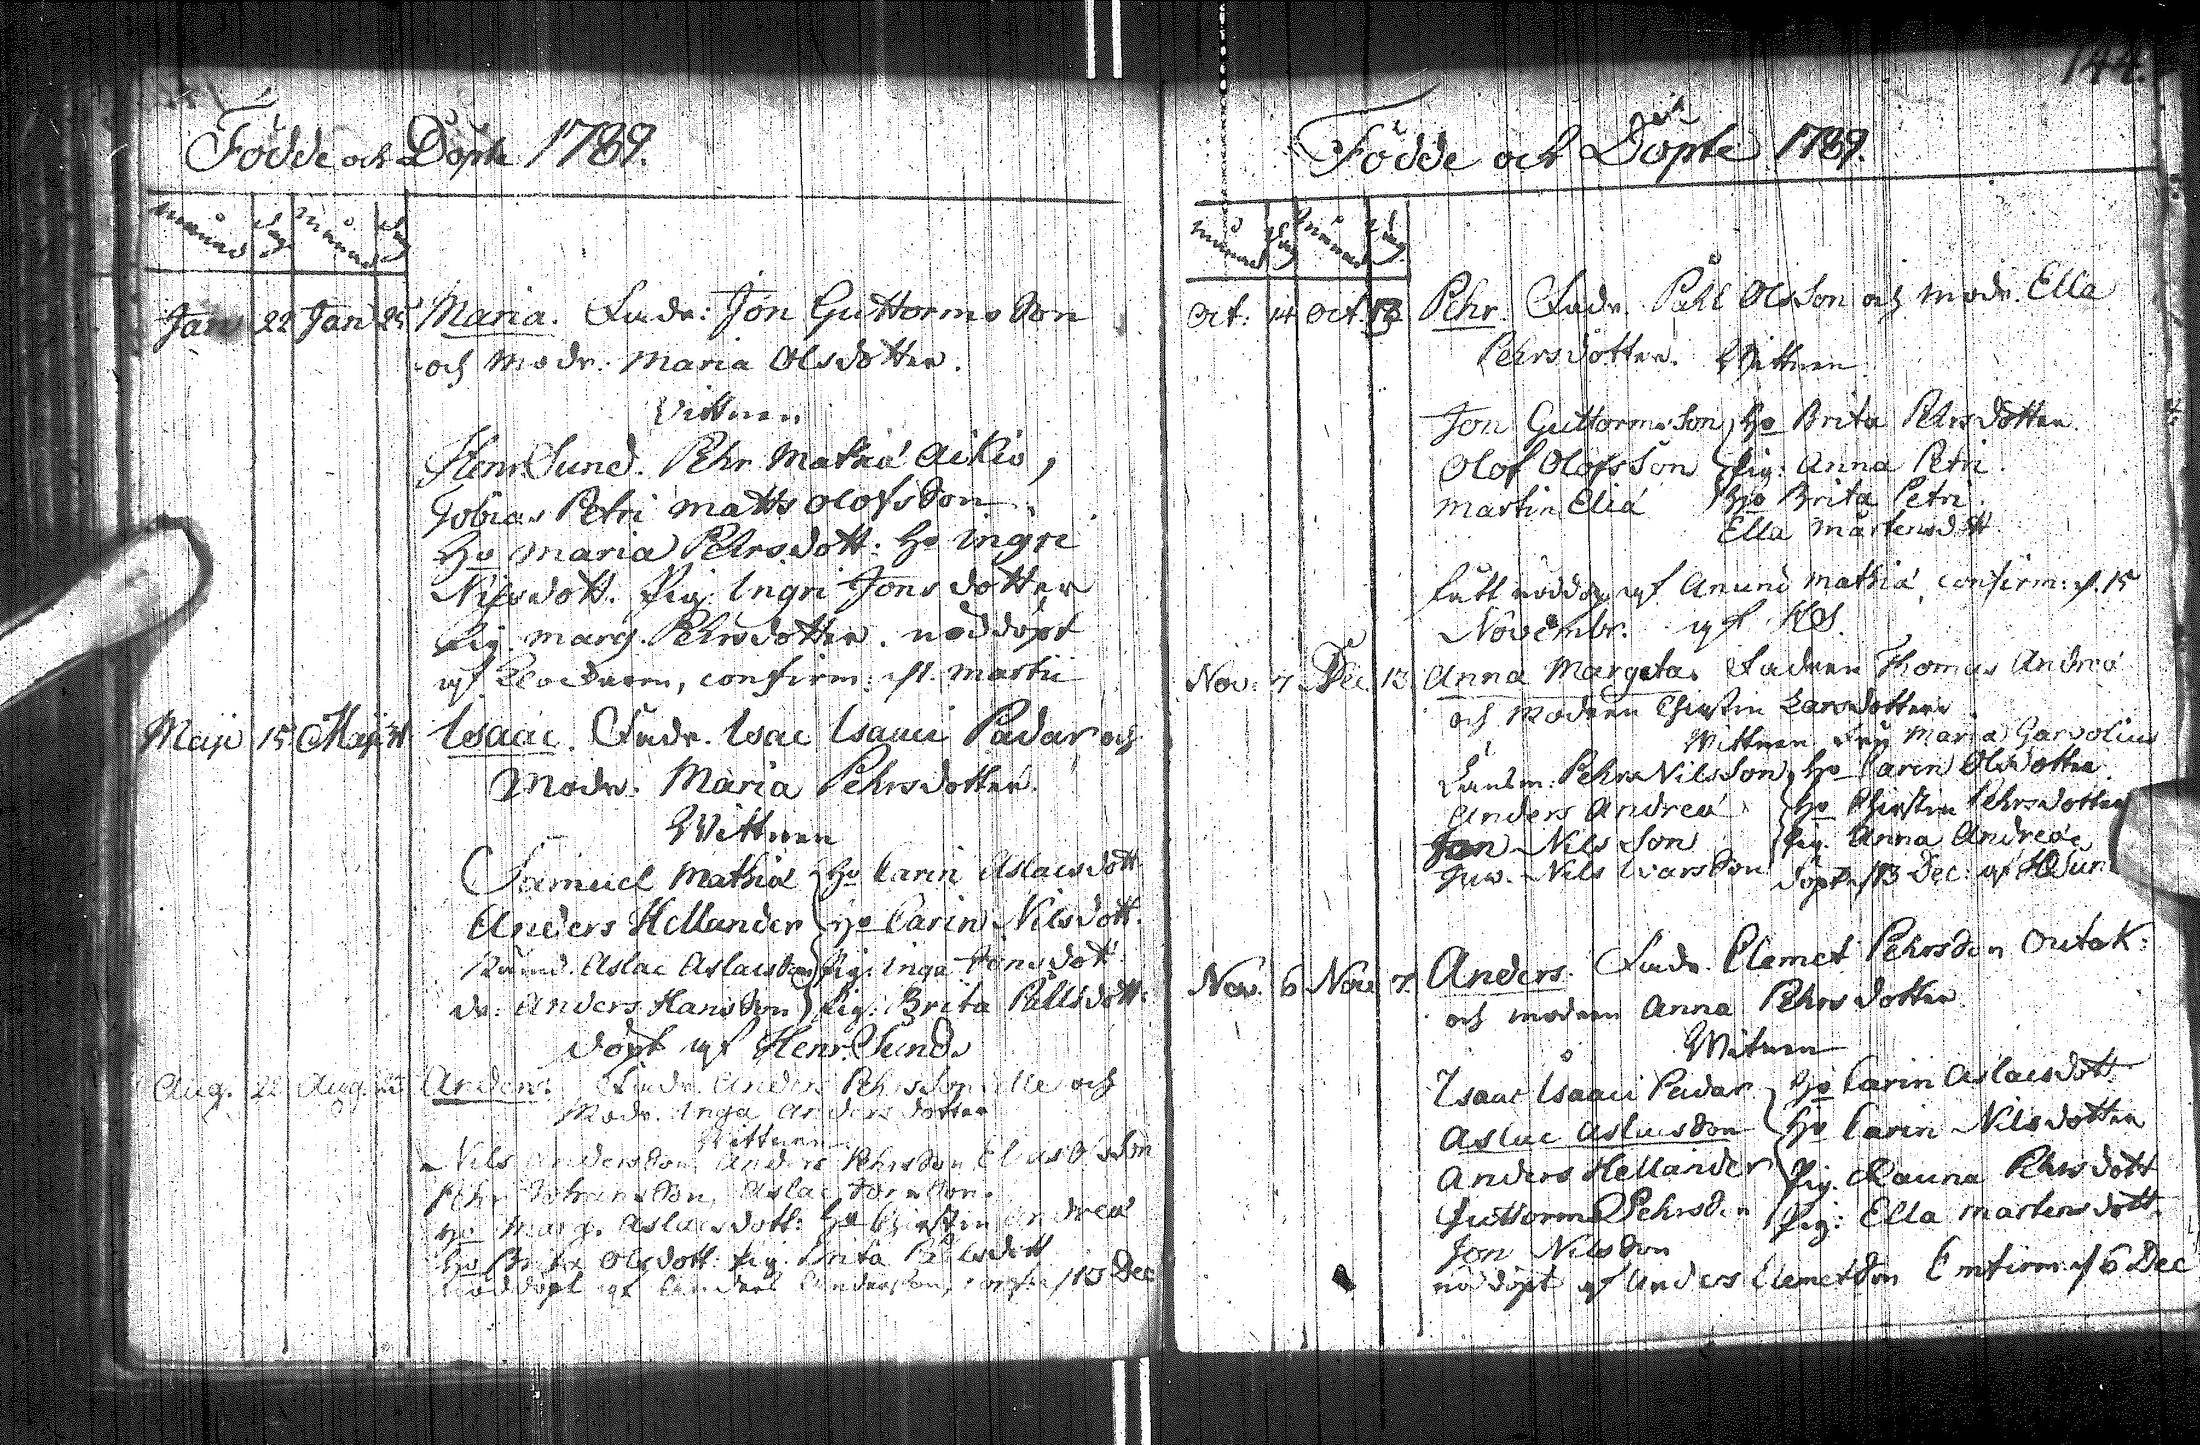 Födde och Döpte 1789.
månad dag månad dag
Jan 22 Jan 25 Maria. Fadr: Jon Guttormsson
och Modr. Maria Olsdotter.
Vittnen
Henr Sund. Pehr Mathiæ Aikio,
Tobias Petri Matts Olofsson
Ho Maria Pehrsdott: Ho Ingri
Nilsdott. Pig. Ingri Jonsdotter
Pig. Marg. Pehrsdotter. nöddöpt
af Klockaren, confirm: d. 1 Martii
Maji 15 Maji 31 Isaac. Fadr. Isac Isaaci Padar och
Modr. Maria Pehrsdotter.
Wittnen
Samuel Mathiæ Ho Carin Aslacsdott
Anders Hellander Ho Carin Nilsdott.
Aslac Aslacsson Pig: Inga Jonsdott
dr: Anders Hansson Pig: Brita Pålsdott:
döpt af Henr. Sund.
Aug. 22 Aug. Anders. Fadr. Anders Pehrsson och
Modr. Inga Andersdotter
Wittnen
Nils Andersson, Anders Pehrsson
Pehr Johansson, Aslac Jonsson.
Ho Marg. Aslacsdott: Ho Christin Andreæ
Ho Brita Olsdott. Pig. Brita Pålsdott
Nöddöpt af Anders Andersson, 13 Dec
144.
Födde och Döpte 1789.
månad dag månad dag
Oct: 14 Oct. Pehr. Fadr. Påhl Olsson och Modr. Ella
Pehrsdotter. Wittnen
Jon Guttormsson Ho Brita Pehrsdotter.
Olof Olofsson Pig: Anna Petri
Martin Eliæ Ho Brita Petri.
Ella Mårtensdott
af Anund Mathiæ, confirm: d. 15
Novembr. af HS.
Nov. 7 Dec. 13 Anna Margeta. Fadren Thomas Andreæ
och Modren Christin Larsdotter
Wittnen Fru Maria Garvolius
Länsm. Pehr Nilsson Ho Carin Olsdotter.
Anders Andreæ Ho Christin Pehrsdotter
Jon Nilsson Pig. Anna Andreæ
Nils Ivarsson döpt d. 13 Dec: af
Nov. 6 Nov. 7. Anders. Fadr. Clemet Pehrsson Outak:
och modren Anna Pehrsdotter.
Witnen
Isaac Isaaci Padar Ho Carin Aslacsdott
Aslac Aslacsson Ho Carin Nilsdotter
Anders Hellander Pig. Rauna Pehrsdott
Guttorm Pehrsson Pig: Ella Martensdott.
Jon Nilsson
nödöpt af Anders Clemetsson Confirm d 6 Dec